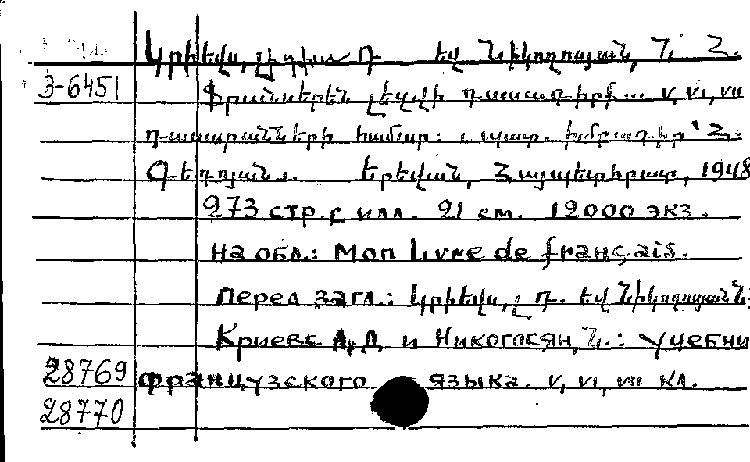 Կրիևս, Լիդիա Դ եվ Նիկողոսյան, Հ.
З-6451 Ֆրանսերեն լեզվի դասագիրք... V, VI, VII
դասարանների համար:
Գեղոյան. Երեվան, Հայպետհրատ, 1948
273 стр. с илл. 21 см. 12000 экз.
На обл.: Mon livre de français.
Перед загл.: Կրիևս, Լ. Դ. եվ Նիկողոսյան
Криевс Л. Д. и Никогосян, : Учебни
28769 французского языка. V, VI, VII кл.
28770